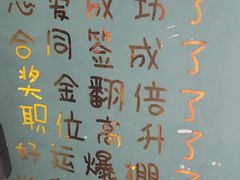 恋爱成功了
合同签成了
奖金翻倍了
职位高升了
好运爆棚了